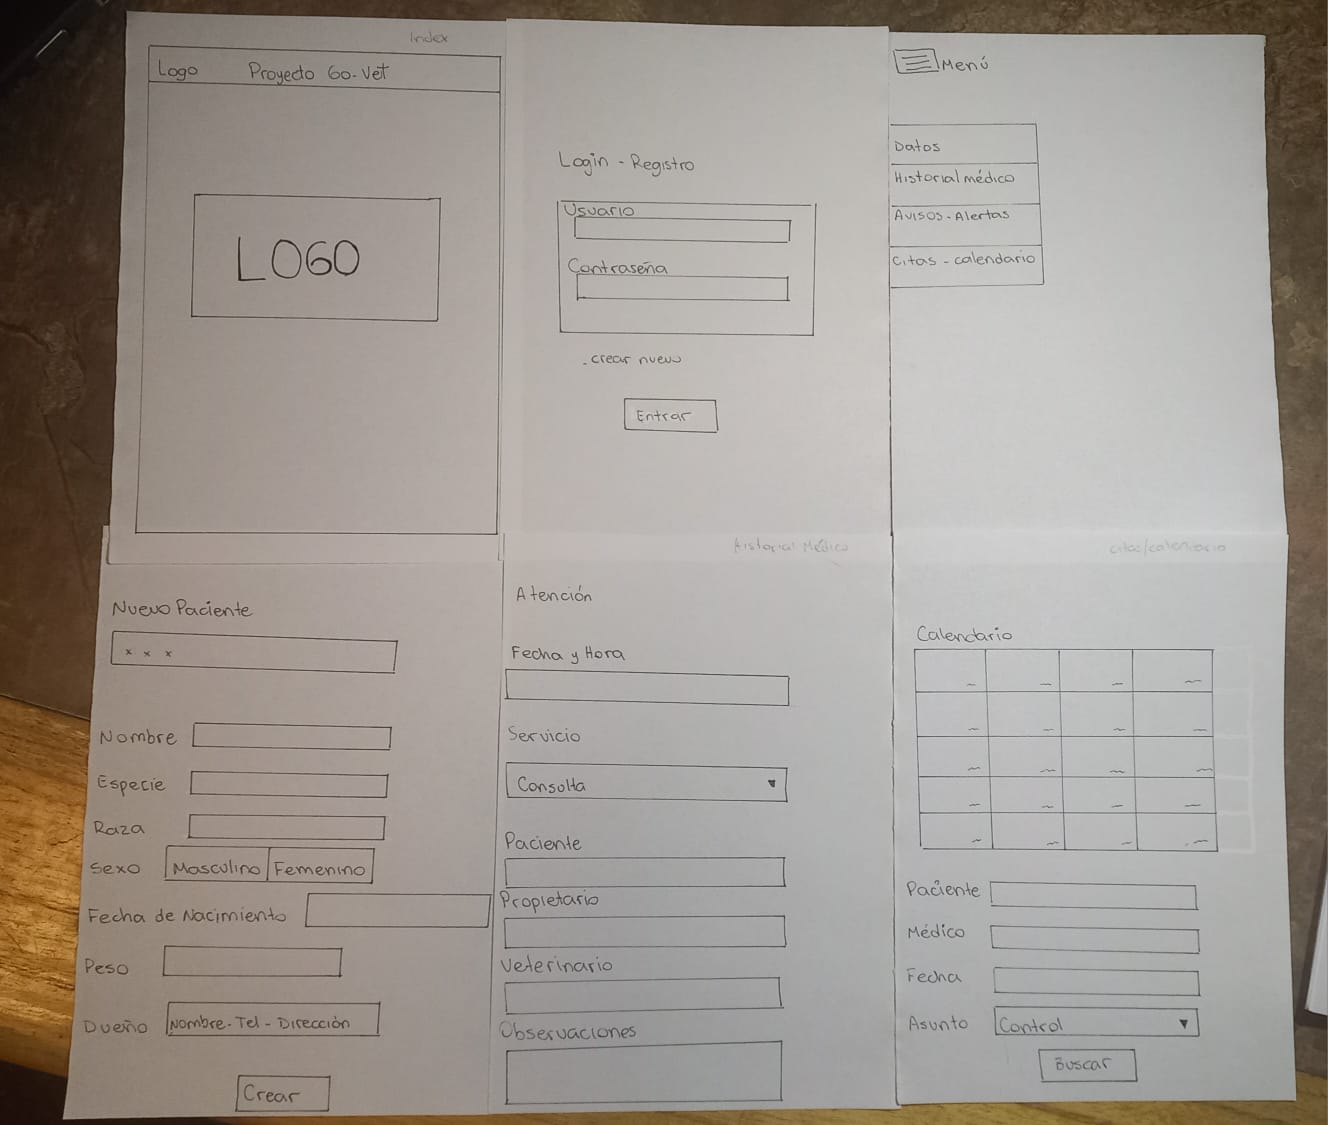 Index
Logo Proyecto Go-Vet
LOGO
Login - Registro
Usuario
Contraseña
. crear nuevo
Entrar
Menú
Datos
Historial médico
Avisos - Alertas
Citas - calendario
Nuevo Paciente
x x x
Nombre
Especie
Raza
Sexo Masculino Femenino
Fecha de Nacimiento
Peso
Dueño Nombre - Tel - Dirección
Crear
Historial Médico
Atención
Fecha y Hora
Servicio
Consolta
Paciente
Propietario
Veterinario
Observaciones
citas/calendario
Calendario
Paciente
Médico
Fecha
Asunto Control
Buscar